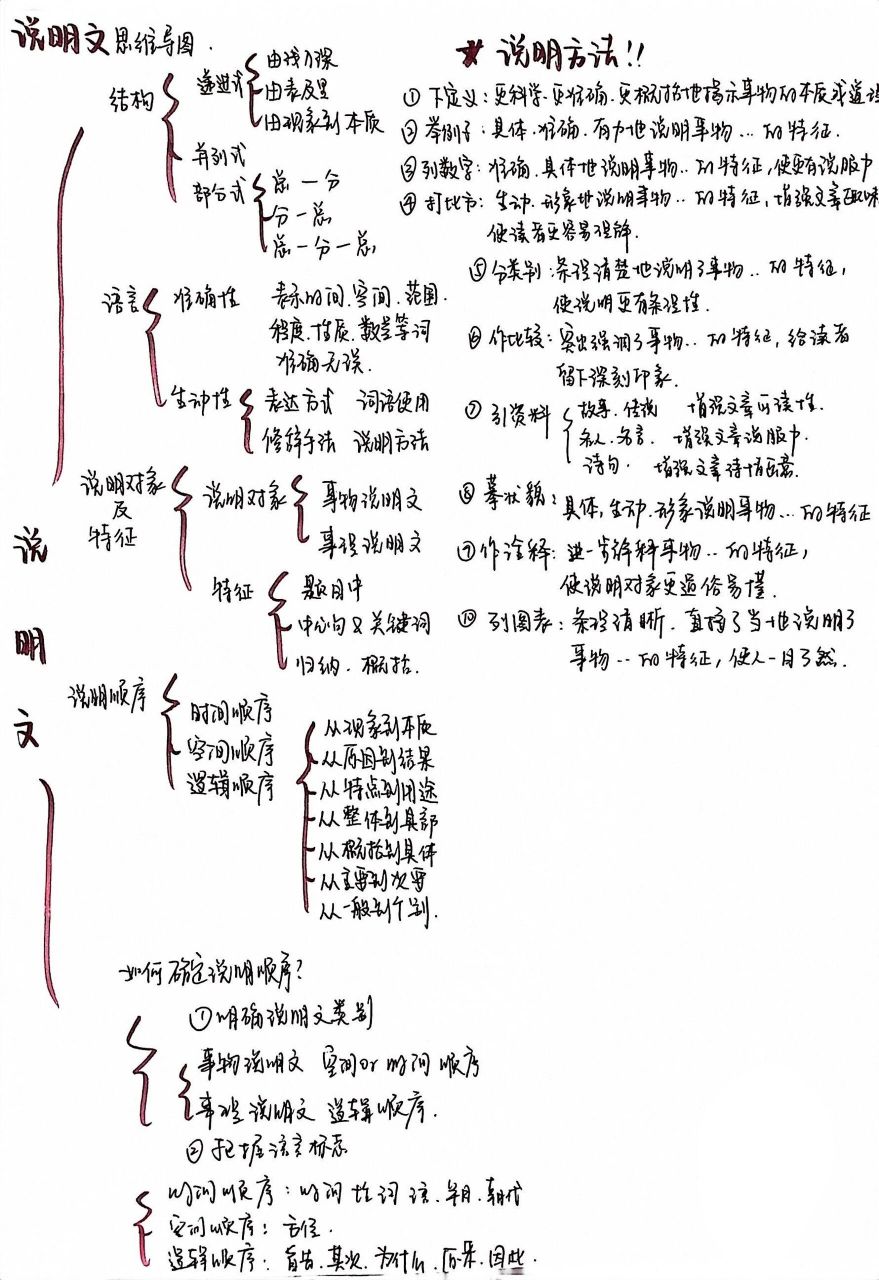 说明文思维导图.
说明文
结构
递进式
由浅入深
由表及里
由现象到本质
并列式
部分式
总一分
分一总
总一分一总
语言
准确性
表示时间、空间、范围、
程度、性质、数量等词
准确无误.
生动性
表达方式 词语使用
修辞手法 说明方法
说明对象
及
特征
说明对象
事物说明文
事理说明文
特征
题目中
中心句&关键词
归纳、概括.
说明顺序
时间顺序
空间顺序
逻辑顺序
从现象到本质
从原因到结果
从特点到用途
从整体到具部
从概括到具体
从主要到次要
从一般到个别.
如何确定说明顺序?
①明确说明文类别
事物说明文 空间or时间顺序
事理说明文 逻辑顺序.
②把握语言标志
时间顺序:时间性词语、年月、朝代
空间顺序:方位.
逻辑顺序:首先、其次、为什么、因果、因此.
★ 说明方法!!
①下定义:更科学、更准确、更概括地揭示事物的本质或道
②举例子:具体、准确、有力地说明事物...的特征.
③列数字:准确、具体地说明事物..的特征,使更有说服力
④打比方:生动、形象地说明事物..的特征,增强文章趣味
使读者更容易理解.
⑤分类别:条理清楚地说明了事物..的特征,
使说明更有条理性.
⑥作比较:突出强调了事物..的特征,给读者
留下深刻印象.
⑦引资料
故事、传说 增强文章可读性.
名人、名言、增强文章说服力.
诗句、增强文章诗情画意.
⑧摹状貌:具体,生动、形象说明事物...的特征
⑨作诠释:进一步解释事物..的特征,
使说明对象更通俗易懂.
⑩列图表:条理清晰、直接了当地说明了
事物..的特征,使人一目了然.